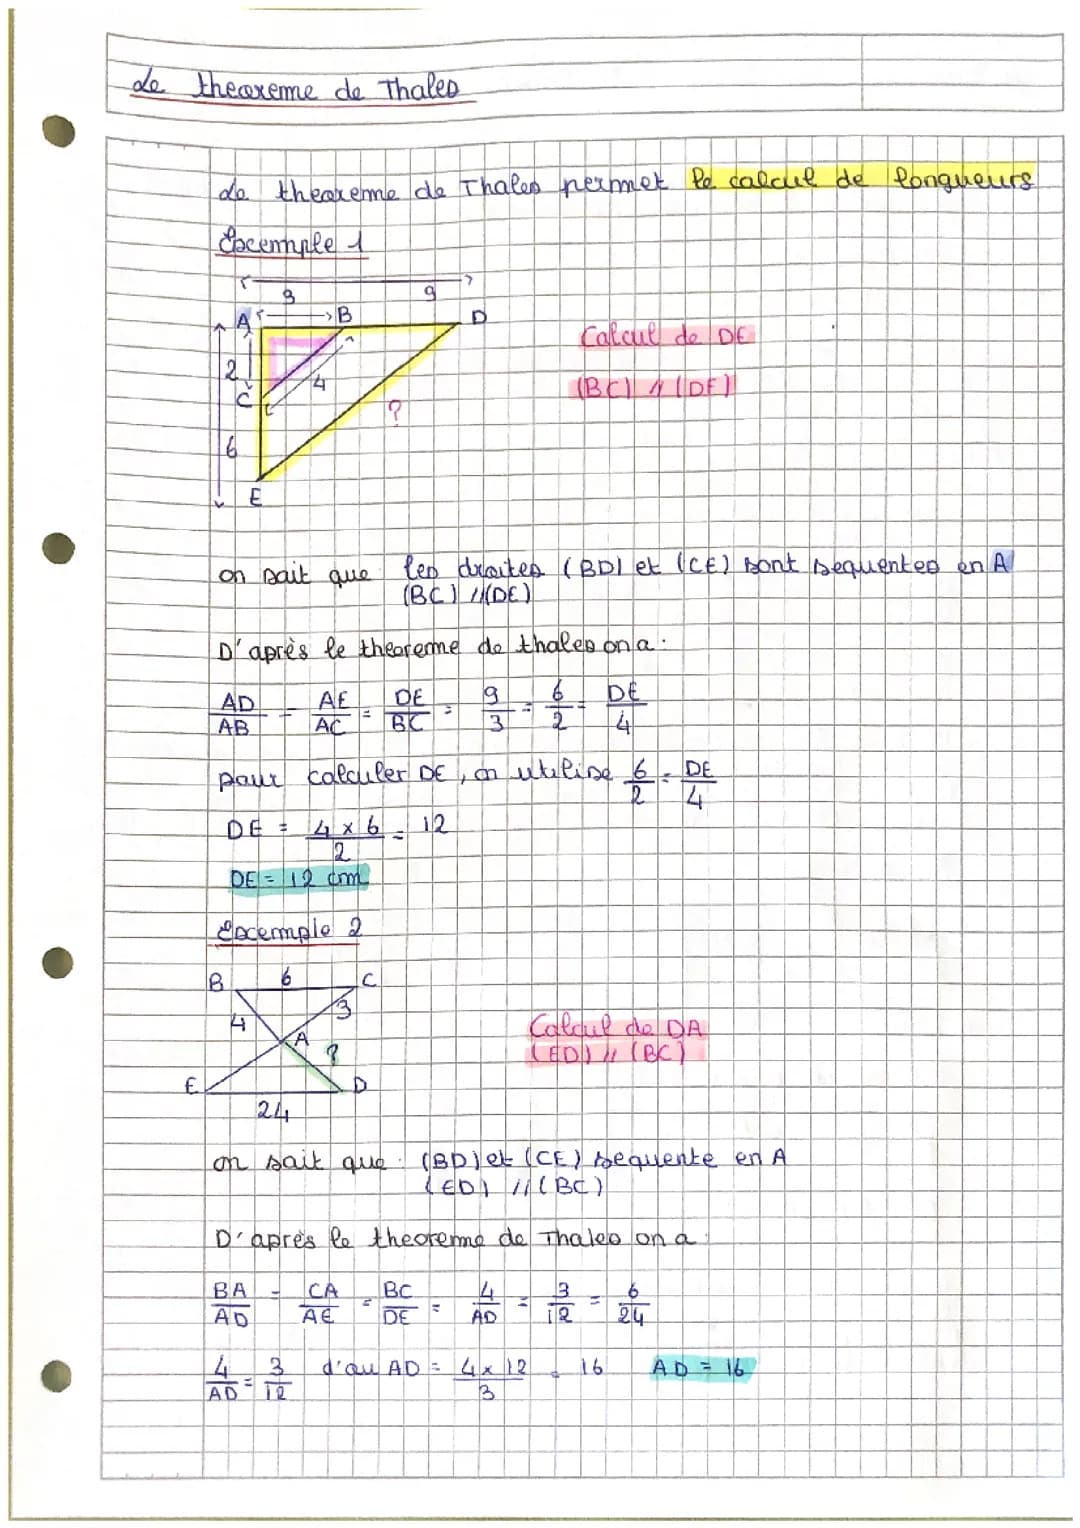 Le theoreme de Thales
Le theoreme de Thales permet le calcul de longueurs
Exemple 1
3 9
A B D
2
C 4
?
6
E
Calcul de DE
(BC) // (DE)
on sait que les droites (BD) et (CE) sont sequentes en A
(BC) //(DE)
D'après le theoreme de thales on a :
AD/AB = AE/AC = DE/BC = 9/3 = 6/2 = DE/4
pour calculer DE, on utilise 6/2 = DE/4
DE = 4 x 6/2 = 12
DE = 12 cm
Exemple 2
B 6 C
4 3
A ?
E D
24
Calcul de DA
(ED) // (BC)
on sait que : (BD) et (CE) sequente en A
(ED) // (BC)
D'après le theoreme de Thales on a :
BA/AD = CA/AE = BC/DE = 4/AD = 3/12 = 6/24
4/AD = 3/12 d'ou AD = 4 x 12/3 = 16 AD = 16